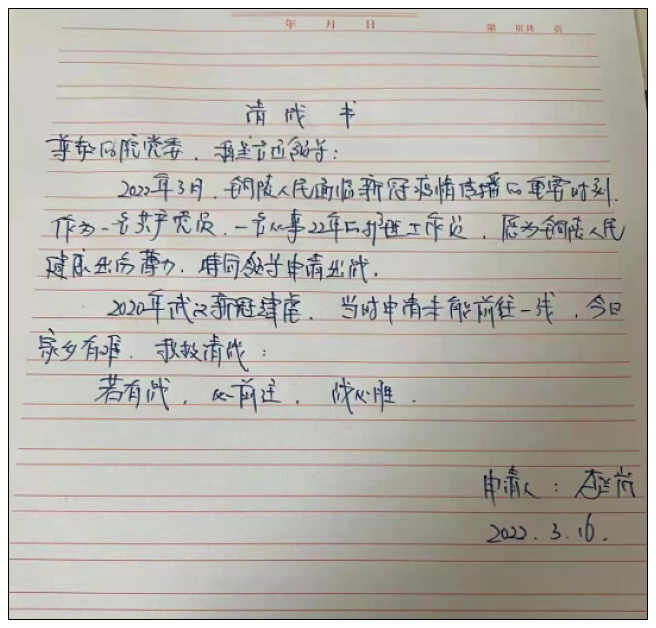 年 月 日 第 页共 页
请战书
尊敬的院党委、各位领导:
2022年3月,铜陵人民面临新冠疫情传播的重要时刻.
作为一名共产党员,一名从事22年的护理工作者,愿为铜陵人民
健康出份薄力,特向领导申请出战.
2020年武汉新冠肆虐,当时申请未能前往一线,今日
家乡有难,我敢请战:
若有战,必前往,战必胜.
申请人:
2022.3.16.